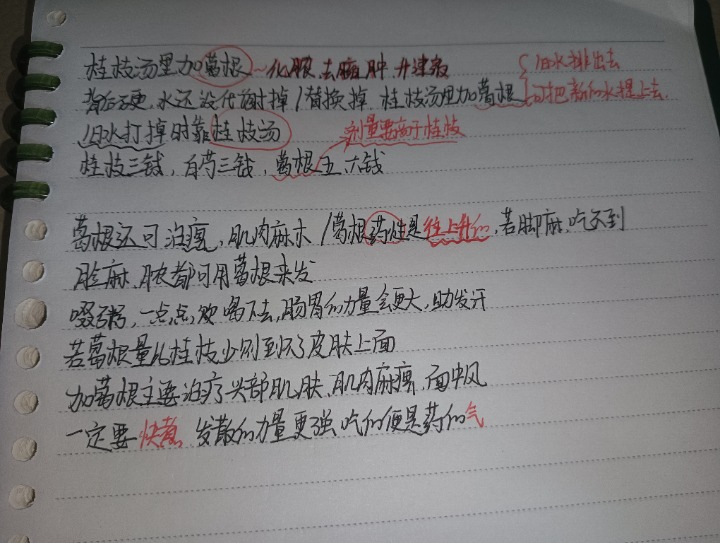 桂枝汤里加葛根~化脓、去痈肿、升津液 {旧水排出去
背后硬,水还没代谢掉/替换掉,桂枝汤里加葛根 可把新的水提上去.
旧水打掉时靠桂枝汤 剂量要高于桂枝
桂枝三钱,白芍三钱,葛根五、六钱
葛根还可治痹,肌肉麻木/葛根药性是往上升的,若脚麻,吃不到
脸麻、脓都可用葛根来发
啜粥,一点点,热喝下去,肠胃的力量会更大,助发汗
若葛根量比桂枝少则到不了皮肤上面
加葛根主要治疗头部肌肤、肌肉麻痹、面中风
一定要快煮,发散的力量更强,吃的便是药的气